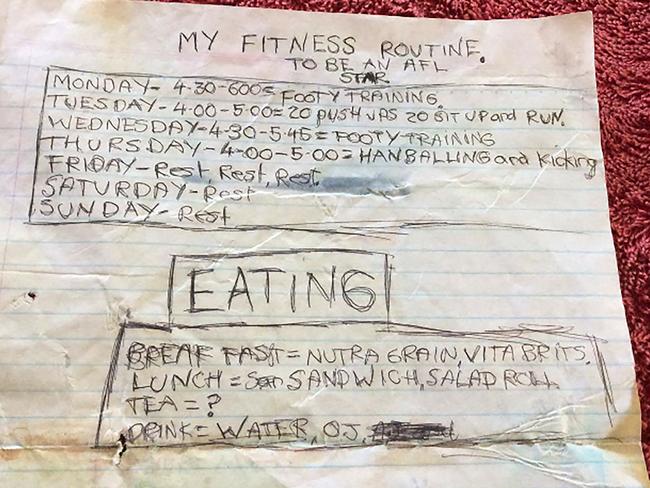 MY FITNESS ROUTINE.
TO BE AN AFL
STAR
MONDAY- 4-30-600= FOOTY TRAINING.
TUESDAY- 4-00-5-00= 20 PUSH UPS 20 SIT UP and RUN.
WEDNESDAY-4-30-5-45= FOOTY-TRAINING
THURSDAY-4-00-5-00= HANBALLING and Kicking
FRIDAY-Rest, Rest, Rest.
SATURDAY-Rest
SUNDAY- Rest
EATING
BREAK FAST= NUTRA GRAIN, VITA BRITS.
LUNCH= SANDWICH, SALAD ROLL
TEA=?
DRINK= WATER, OJ,